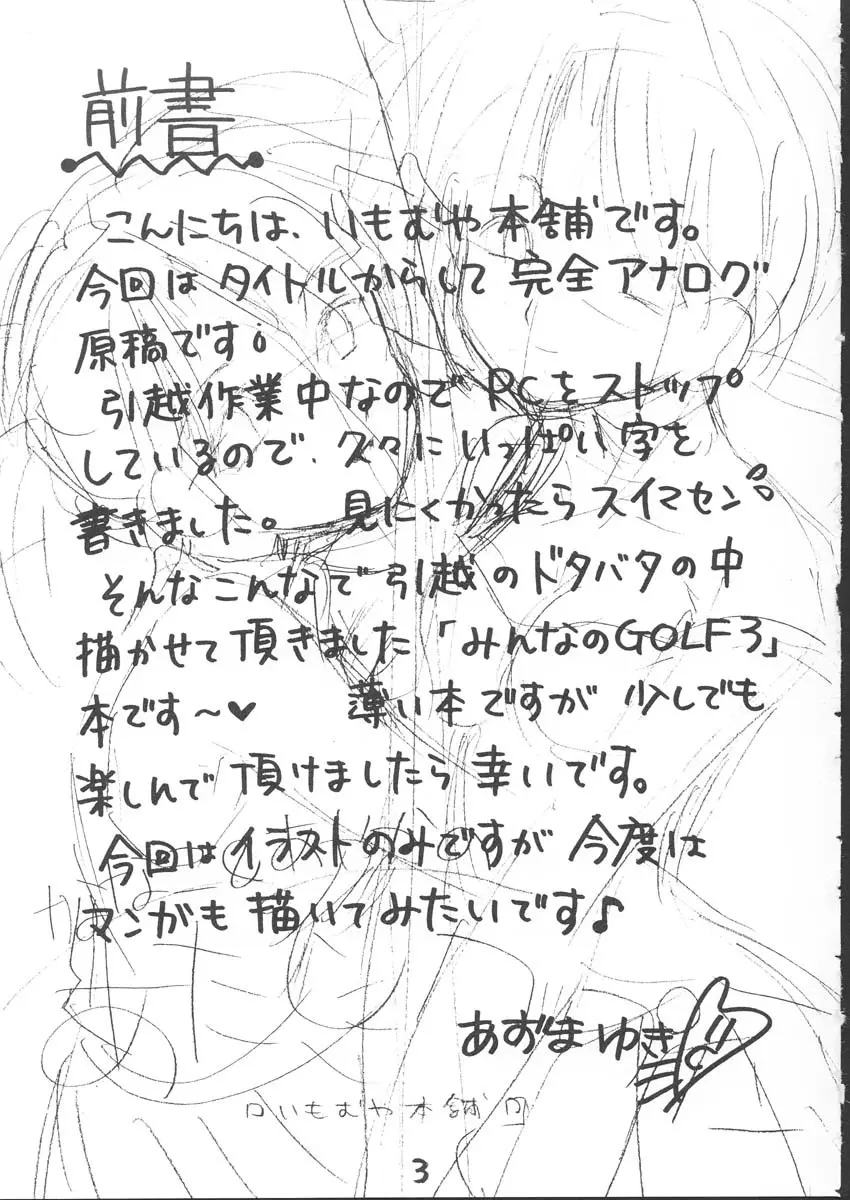 前書
こんにちは、いもむや本舗です。
今回はタイトルからして完全アナログ
原稿です。
引越作業中なのでPCをストップ
しているので、久々にいっぱい字を
書きました。 見にくかったらスイマセン。
そんなこんなで引越のドタバタの中
描かせて頂きました「みんなのGOLF3」
本です〜♥ 薄い本ですが少しでも
楽しんで頂けましたら幸いです。
今回はイラストのみですが今度は
マンガも描いてみたいです♪
あずまゆき
いもむや本舗
3